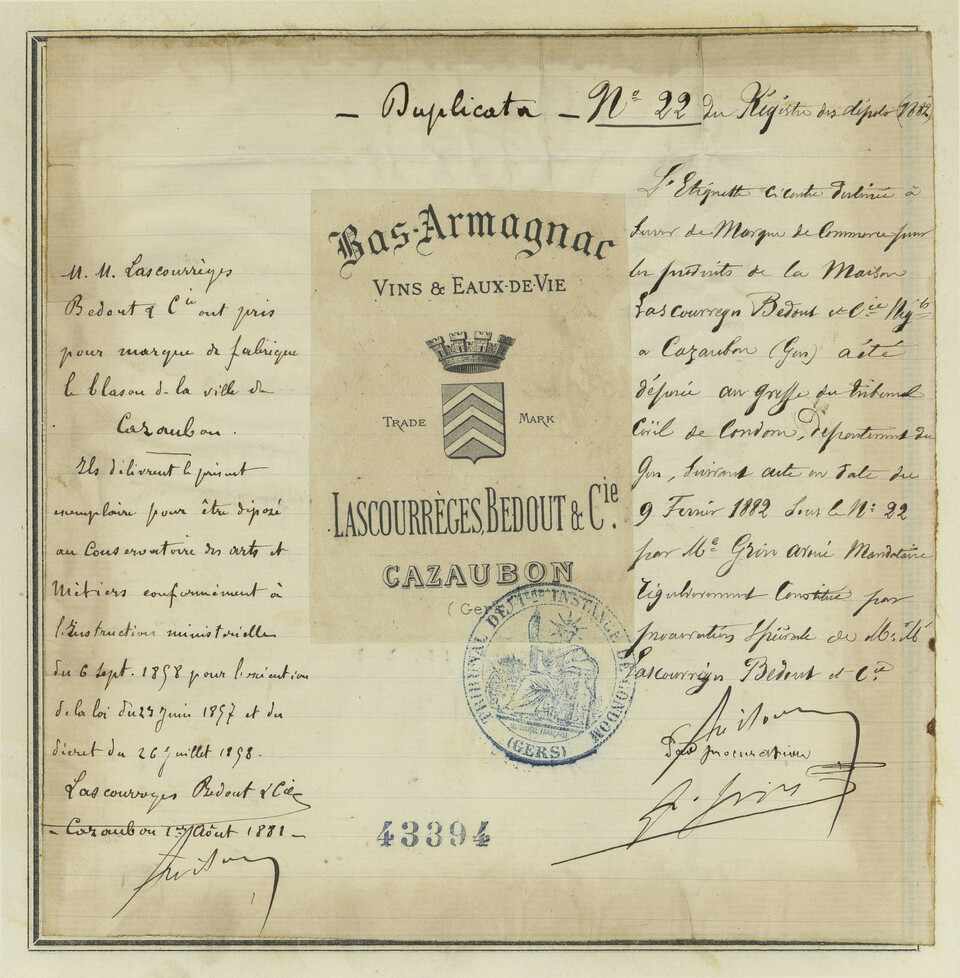 - Duplicata - Nº 22 du Régistre des dépots (1882)
M. M. Lascourrèges
Bedout & Cie ont pris
pour marque de fabrique
le blason de la ville de
Cazaubon.
Ils délivrent le présent
exemplaire pour être déposé
au Conservatoire des arts et
Métiers conformément à
l'Instruction ministérielle
du 6 Sept. 1858 pour l'exécution
de la loi du 23 Juin 1857 et du
décret du 26 juillet 1858.
Lascourreges Bedout & Cie
- Cazaubon 1er Août 1881 -
Bas-Armagnac
VINS & EAUX-DE-VIE
TRADE MARK
LASCOURRÈGES, BEDOUT & Cie.
CAZAUBON
(Gers
TRIBUNAL DE 1ERE INSTANCE DE CONDOM
(GERS)
43394
L'Etiquette ci contre destinée à
servir de Marque de Commerce pour
les produits de la Maison
Lascourreges Bedout et Cie Negts
a Cazaubon (Gers) a été
déposée au greffe du tribunal
Civil de Condom, département du
Gers, suivant acte en date du
9 Fevrier 1882 sous le Nº 22
par Me Grin avoué Mandataire
régulierement Constitué par
procuration spéciale de M. M
Lascourreges Bedout et Cie
Par procuration